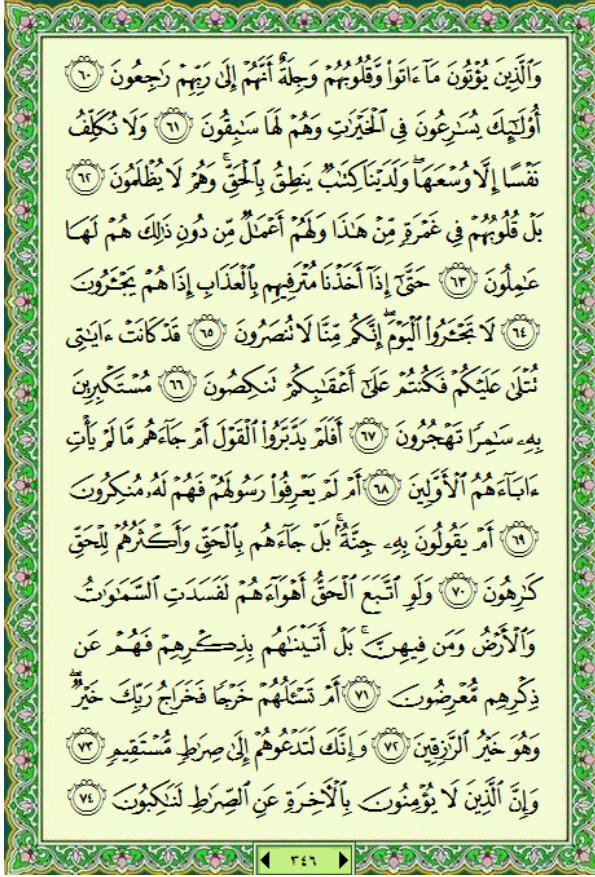 وَٱلَّذِينَ يُؤۡتُونَ مَآ ءَاتَواْ وَّقُلُوبُهُمۡ وَجِلَةٌ أَنَّهُمۡ إِلَىٰ رَبِّهِمۡ رَٰجِعُونَ ٦٠
أُوْلَٰٓئِكَ يُسَٰرِعُونَ فِي ٱلۡخَيۡرَٰتِ وَهُمۡ لَهَا سَٰبِقُونَ ٦١ وَلَا نُكَلِّفُ
نَفۡسًا إِلَّا وُسۡعَهَاۖ وَلَدَيۡنَا كِتَٰبٞ يَنطِقُ بِٱلۡحَقِّۚ وَهُمۡ لَا يُظۡلَمُونَ ٦٢
بَلۡ قُلُوبُهُمۡ فِي غَمۡرَةٖ مِّنۡ هَٰذَا وَلَهُمۡ أَعۡمَٰلٞ مِّن دُونِ ذَٰلِكَ هُمۡ لَهَا
عَٰمِلُونَ ٦٣ حَتَّىٰٓ إِذَآ أَخَذۡنَا مُتۡرَفِيهِم بِٱلۡعَذَابِ إِذَا هُمۡ يَجۡـَٔرُونَ
٦٤ لَا تَجۡـَٔرُواْ ٱلۡيَوۡمَۖ إِنَّكُم مِّنَّا لَا تُنصَرُونَ ٦٥ قَدۡ كَانَتۡ ءَايَٰتِي
تُتۡلَىٰ عَلَيۡكُمۡ فَكُنتُمۡ عَلَىٰٓ أَعۡقَٰبِكُمۡ تَنكِصُونَ ٦٦ مُسۡتَكۡبِرِينَ
بِهِۦ سَٰمِرٗا تَهۡجُرُونَ ٦٧ أَفَلَمۡ يَدَّبَّرُواْ ٱلۡقَوۡلَ أَمۡ جَآءَهُم مَّا لَمۡ يَأۡتِ
ءَابَآءَهُمُ ٱلۡأَوَّلِينَ ٦٨ أَمۡ لَمۡ يَعۡرِفُواْ رَسُولَهُمۡ فَهُمۡ لَهُۥ مُنكِرُونَ
٦٩ أَمۡ يَقُولُونَ بِهِۦ جِنَّةُۢۚ بَلۡ جَآءَهُم بِٱلۡحَقِّ وَأَكۡثَرُهُمۡ لِلۡحَقِّ
كَٰرِهُونَ ٧٠ وَلَوِ ٱتَّبَعَ ٱلۡحَقُّ أَهۡوَآءَهُمۡ لَفَسَدَتِ ٱلسَّمَٰوَٰتُ
وَٱلۡأَرۡضُ وَمَن فِيهِنَّۚ بَلۡ أَتَيۡنَٰهُم بِذِكۡرِهِمۡ فَهُمۡ عَن
ذِكۡرِهِم مُّعۡرِضُونَ ٧١ أَمۡ تَسۡـَٔلُهُمۡ خَرۡجٗا فَخَرَاجُ رَبِّكَ خَيۡرٞۖ
وَهُوَ خَيۡرُ ٱلرَّٰزِقِينَ ٧٢ وَإِنَّكَ لَتَدۡعُوهُمۡ إِلَىٰ صِرَٰطٖ مُّسۡتَقِيمٖ ٧٣
وَإِنَّ ٱلَّذِينَ لَا يُؤۡمِنُونَ بِٱلۡأٓخِرَةِ عَنِ ٱلصِّرَٰطِ لَنَٰكِبُونَ ٧٤
٣٤٦